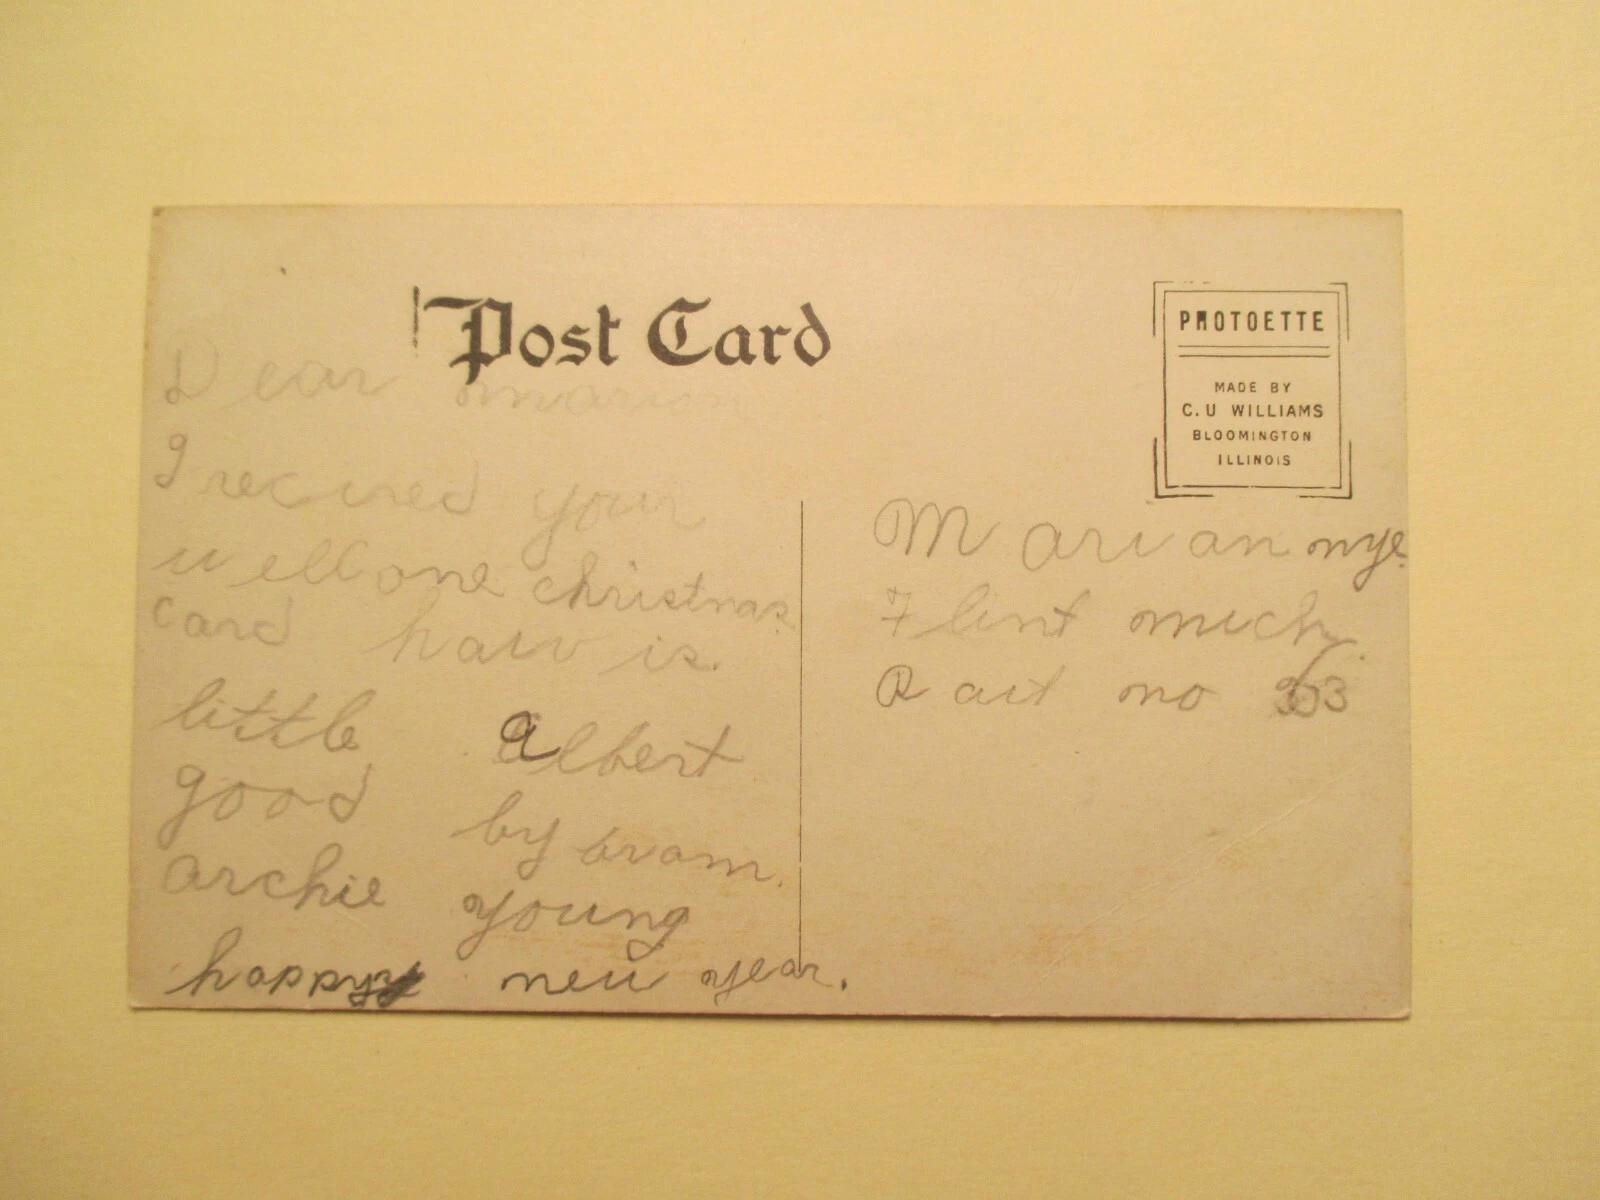 Post Card
PHOTOETTE
MADE BY
C. U WILLIAMS
BLOOMINGTON
ILLINOIS
Dear marion
I recived your
wellcone christmas
card haw is
little albert
good by from
archie young
happy new year.
Marian nye
Flint mich
R aut no 3